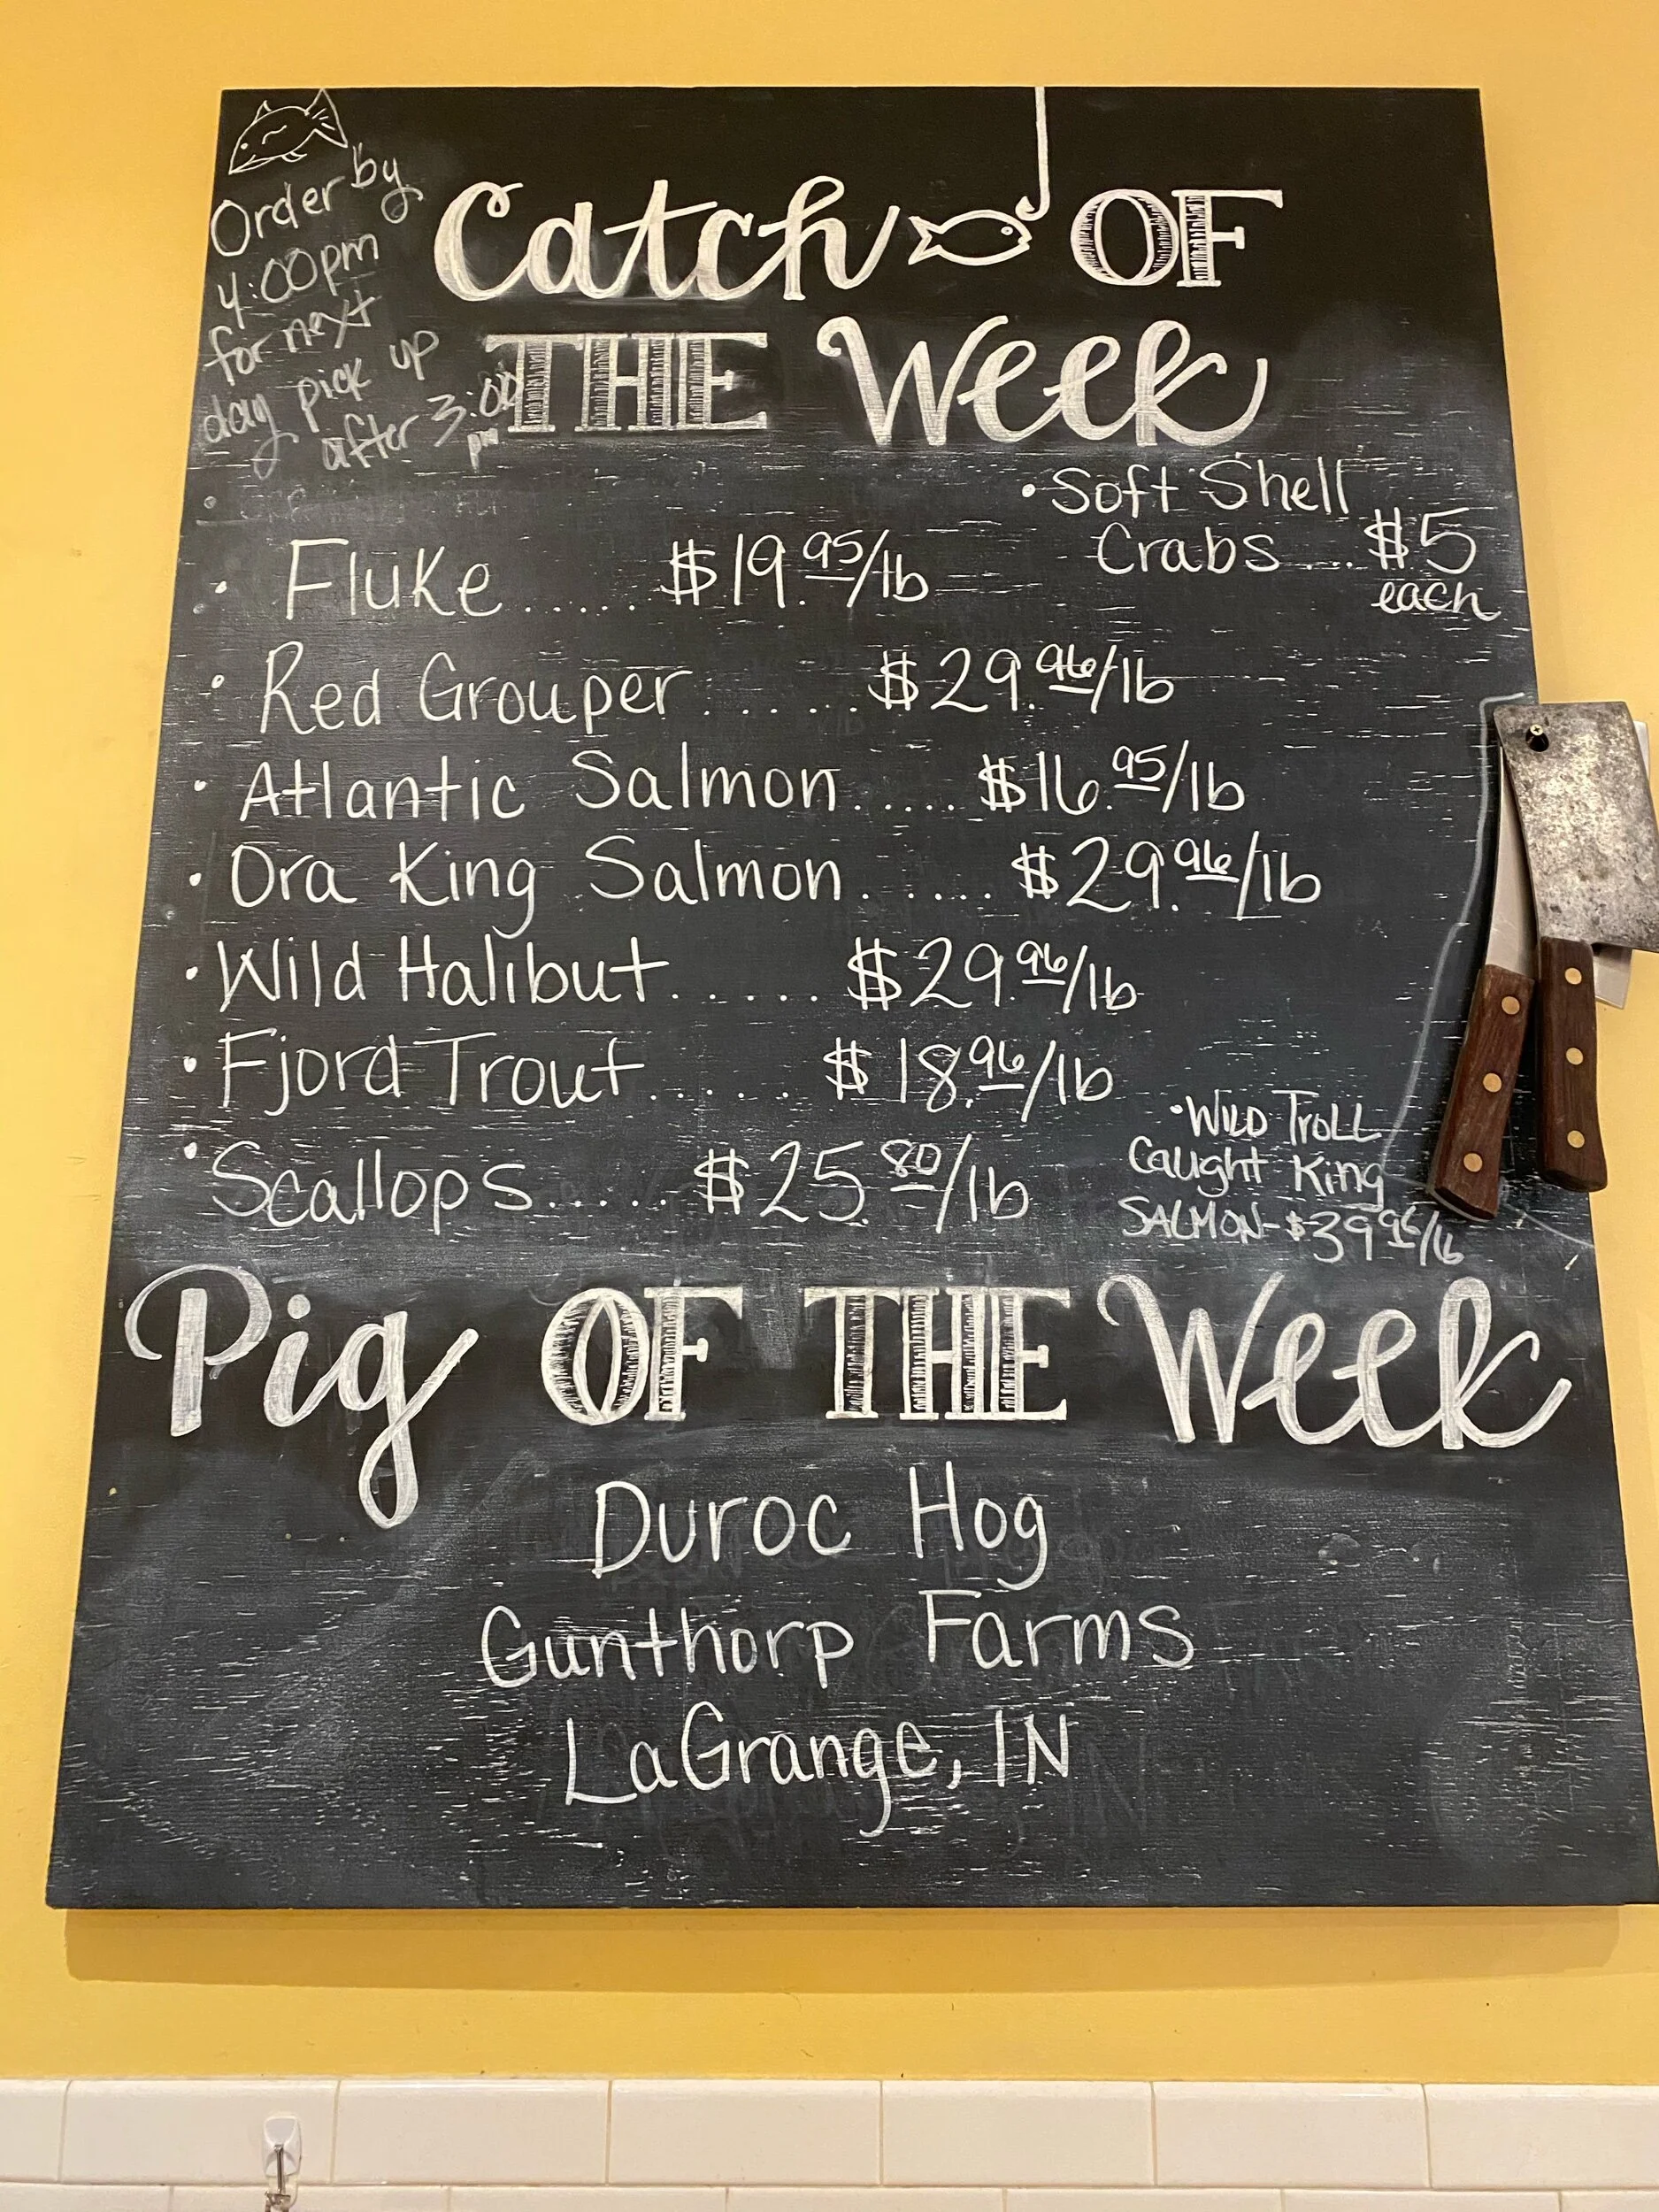 Order by
4:00pm
for next
day pick up
after 3:00
pm
Catch OF
THE Week
• Soft Shell
Crabs .... $5
each
• Fluke ...... $19.95/lb
• Red Grouper ...... $29.96/lb
• Atlantic Salmon ..... $16.95/lb
• Ora King Salmon ...... $29.96/lb
• Wild Halibut ..... $29.96/lb
• Fjord Trout ..... $18.96/lb
• Scallops ..... $25.80/lb
• WILD TROLL
Caught King
SALMON - $39.96/lb
Pig OF THE Week
Duroc Hog
Gunthorp Farms
LaGrange, IN